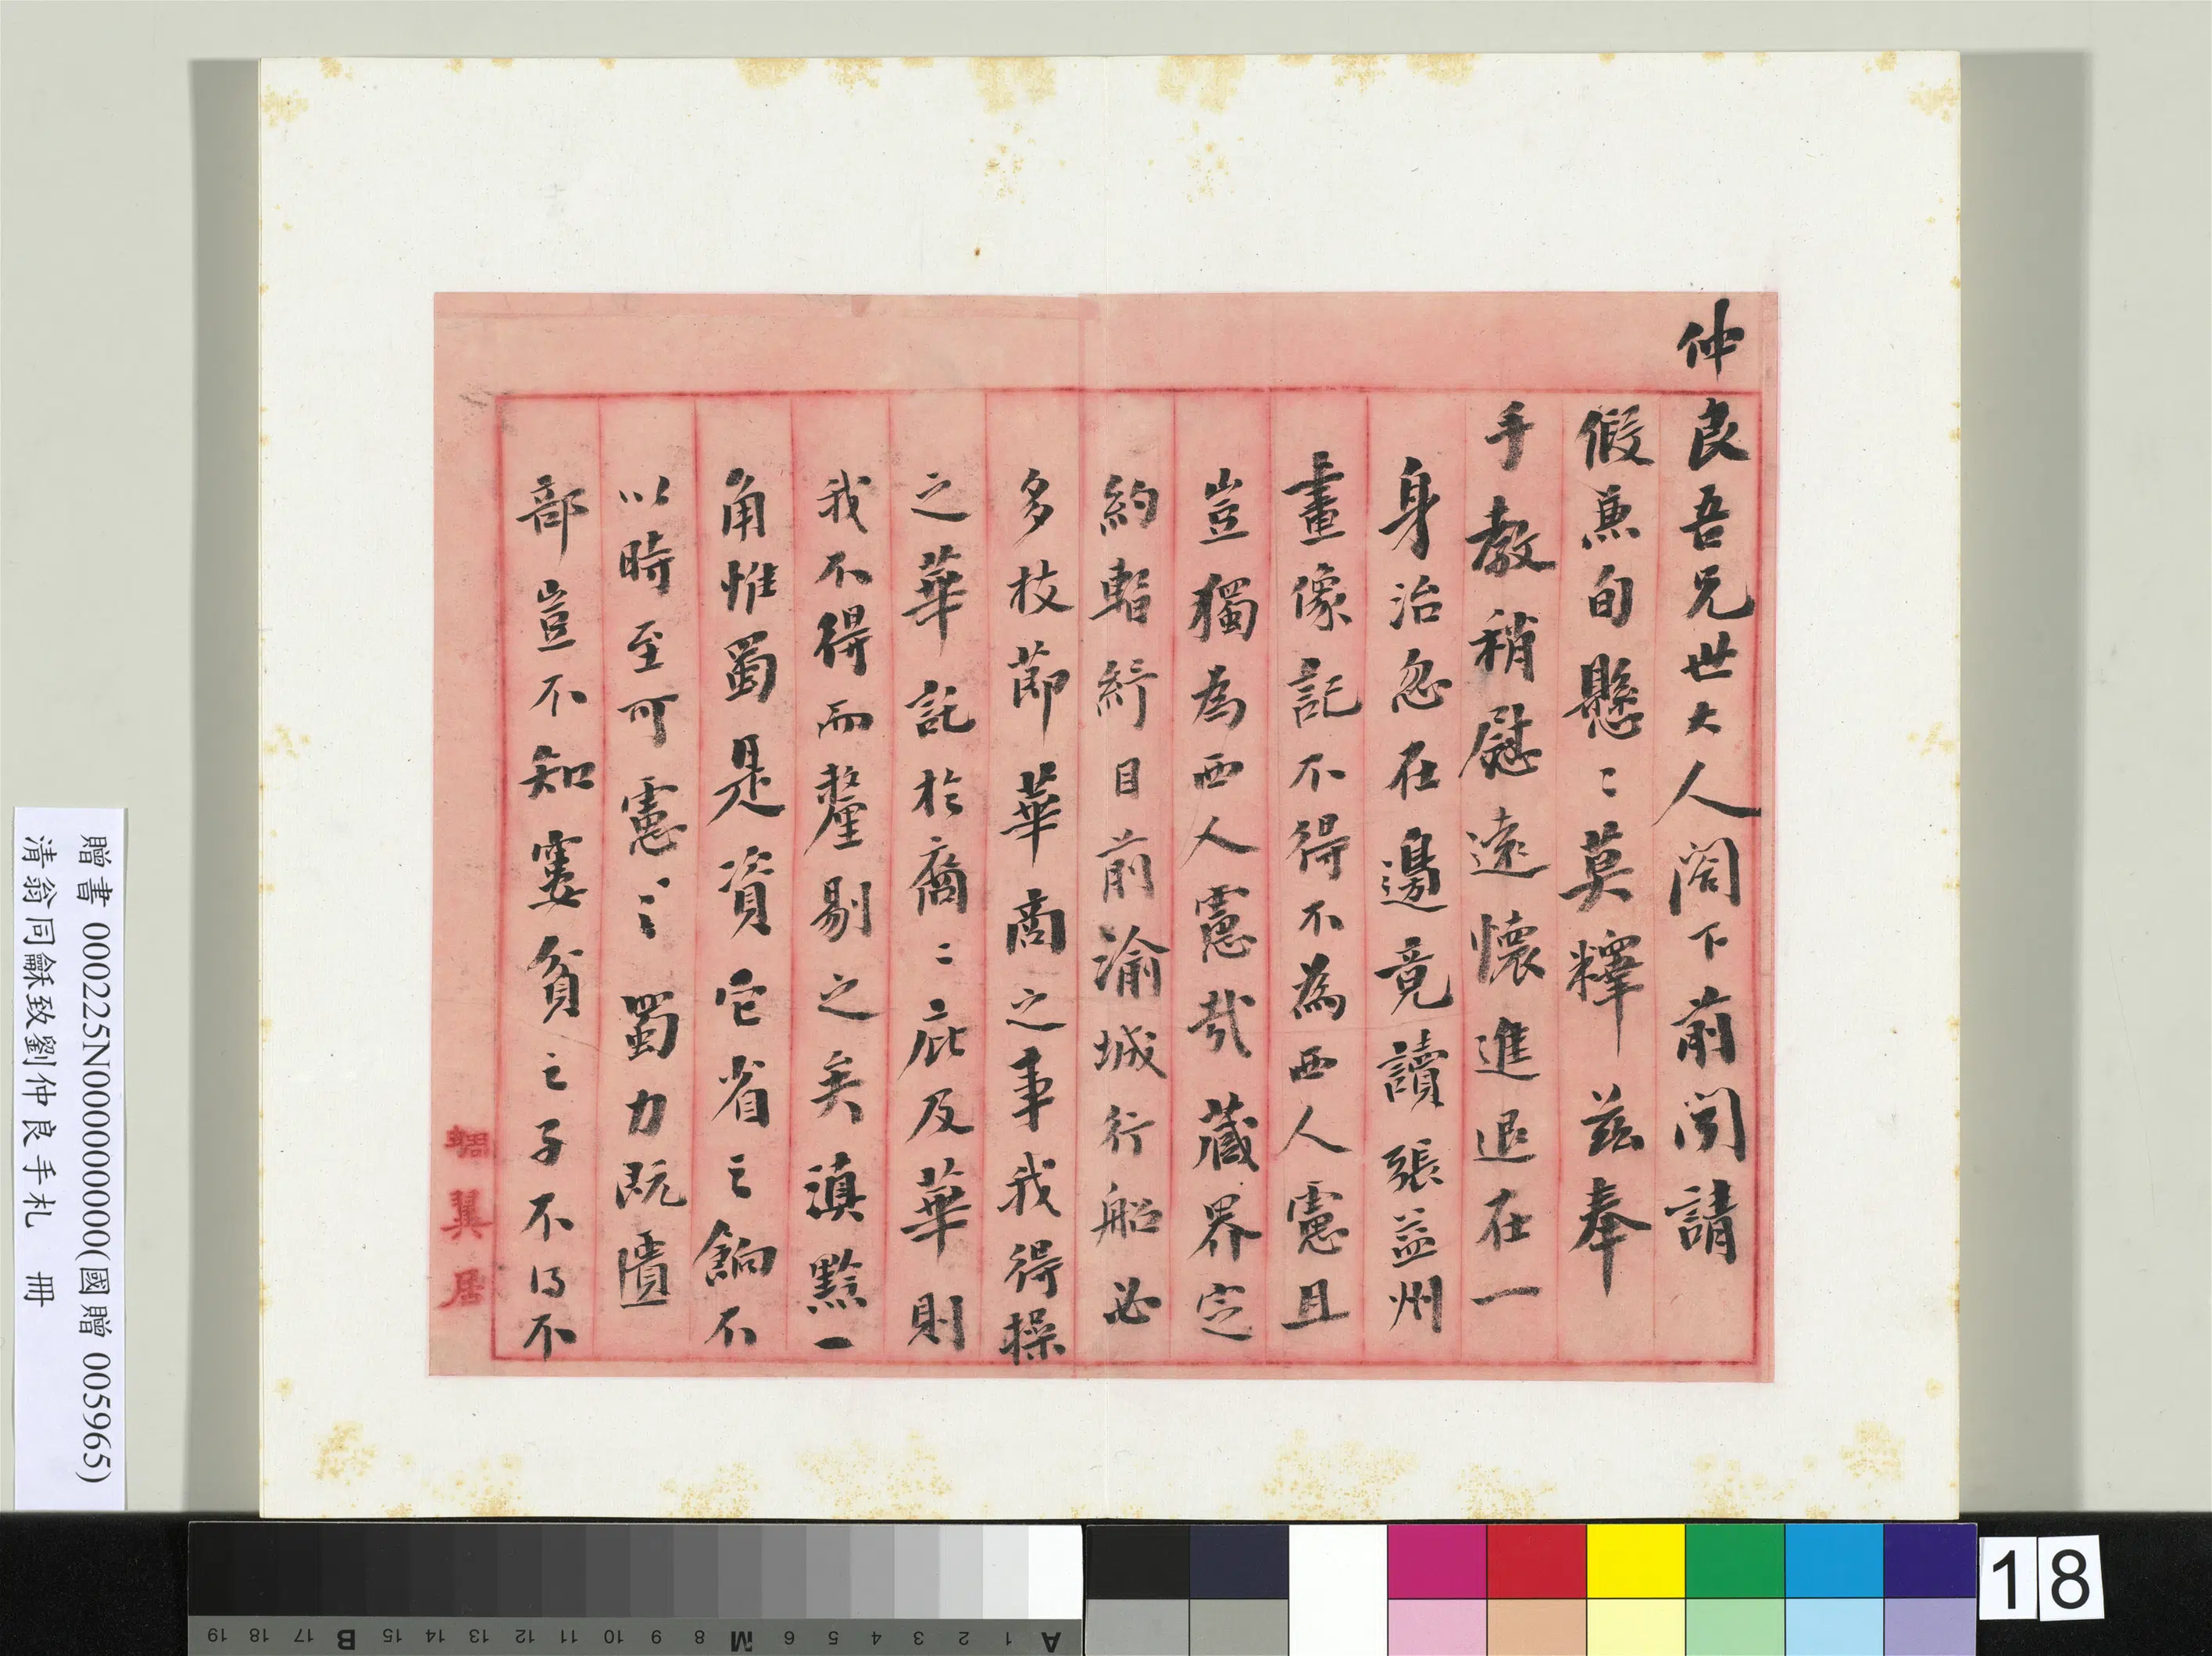 仲良吾兄世大人閣下前聞請
假兼旬懸〻莫釋茲奉
手教稍慰遠懷進退在一
身治忽在邊竟讀張益州
畫像記不得不為西人憲且
豈獨為西人憲哉藏界定
約暫紓目前渝城行船必
多枝節華商之事我得操
之華託於裔〻庇及華則
我不得而釐剔之矣滇黔一
角惟蜀是資它省之餉不
以時至可憲〻〻蜀力既匱
部豈不知窶貧之子不得不
翼居
贈書 000225N000000000(國贈 005965)
清翁同龢致劉仲良手札 冊
19 18 17 B 15 14 13 12 11 10 9 8 M 6 5 4 3 2 1 A
18